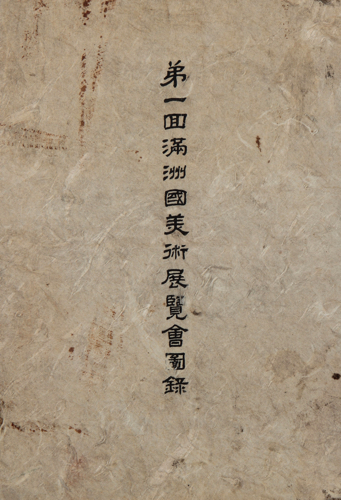 第一回滿洲國美術展覽會圖錄